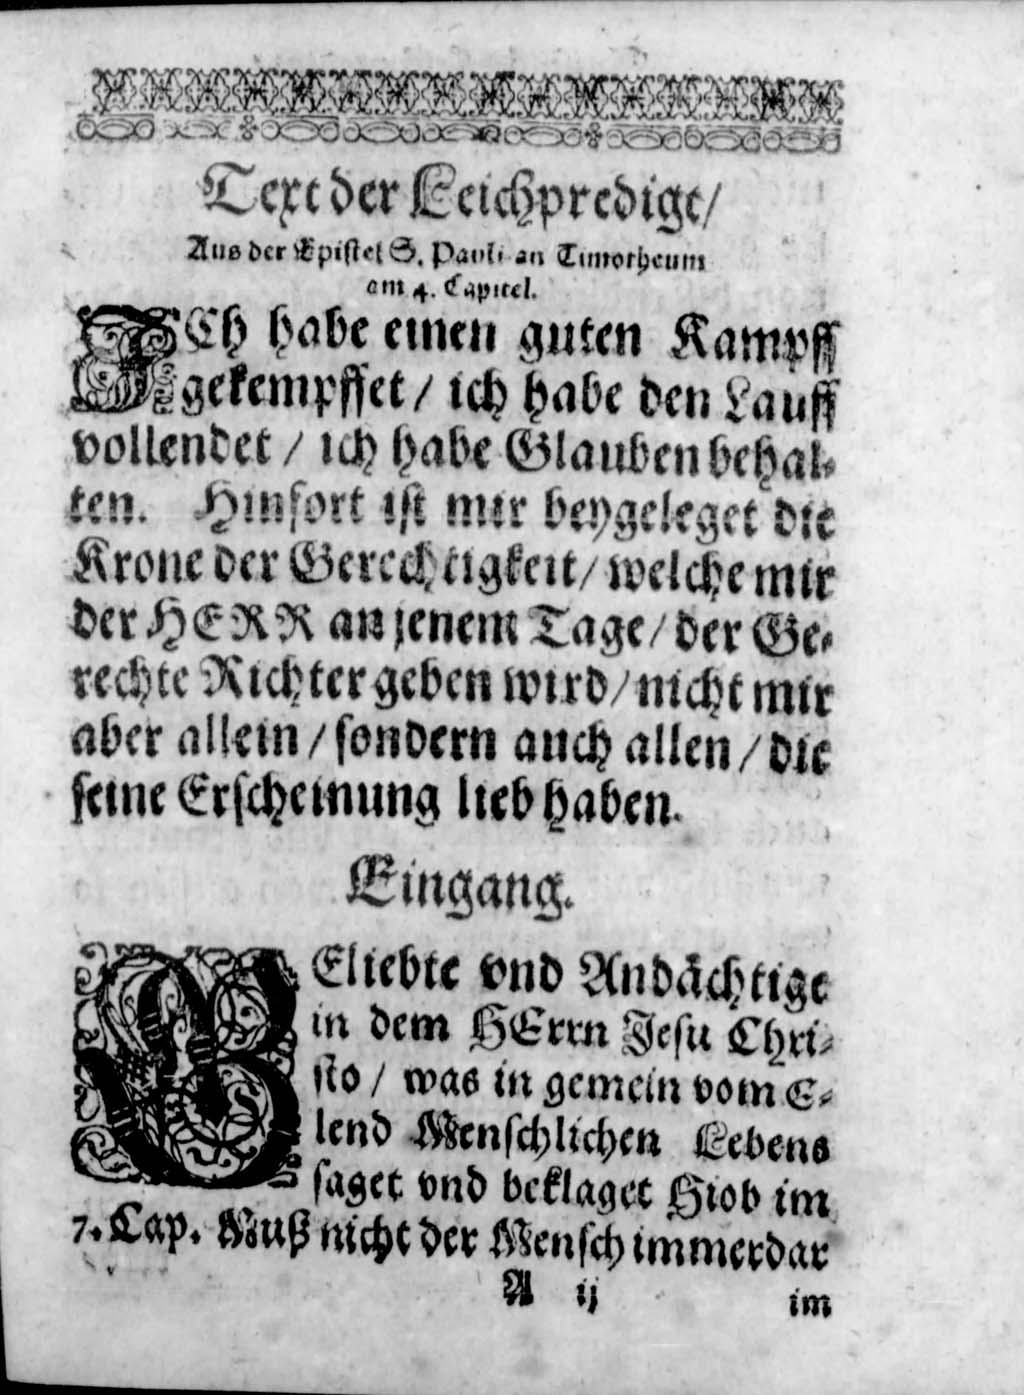 Text der Leichpredigt/
Aus der Epistel S. Pauli an Timotheum
am 4. Capitel.
ICh habe einen guten Kampff
gekempffet / ich habe den Lauff
vollendet / ich habe Glauben behal-
ten. Hinfort ist mir beygeleget die
Krone der Gerechtigkeit / welche mir
der HERR an jenem Tage / der Ge-
rechte Richter geben wird / nicht mir
aber allein / sondern auch allen / die
seine Erscheinung lieb haben.
Eingang.
BEliebte vnd Andächtige
in dem HErrn Jesu Chri-
sto / was in gemein vom E-
lend Menschlichen Lebens
saget vnd beklaget Hiob im
7. Cap. Muß nicht der Mensch immerdar
A ij
im